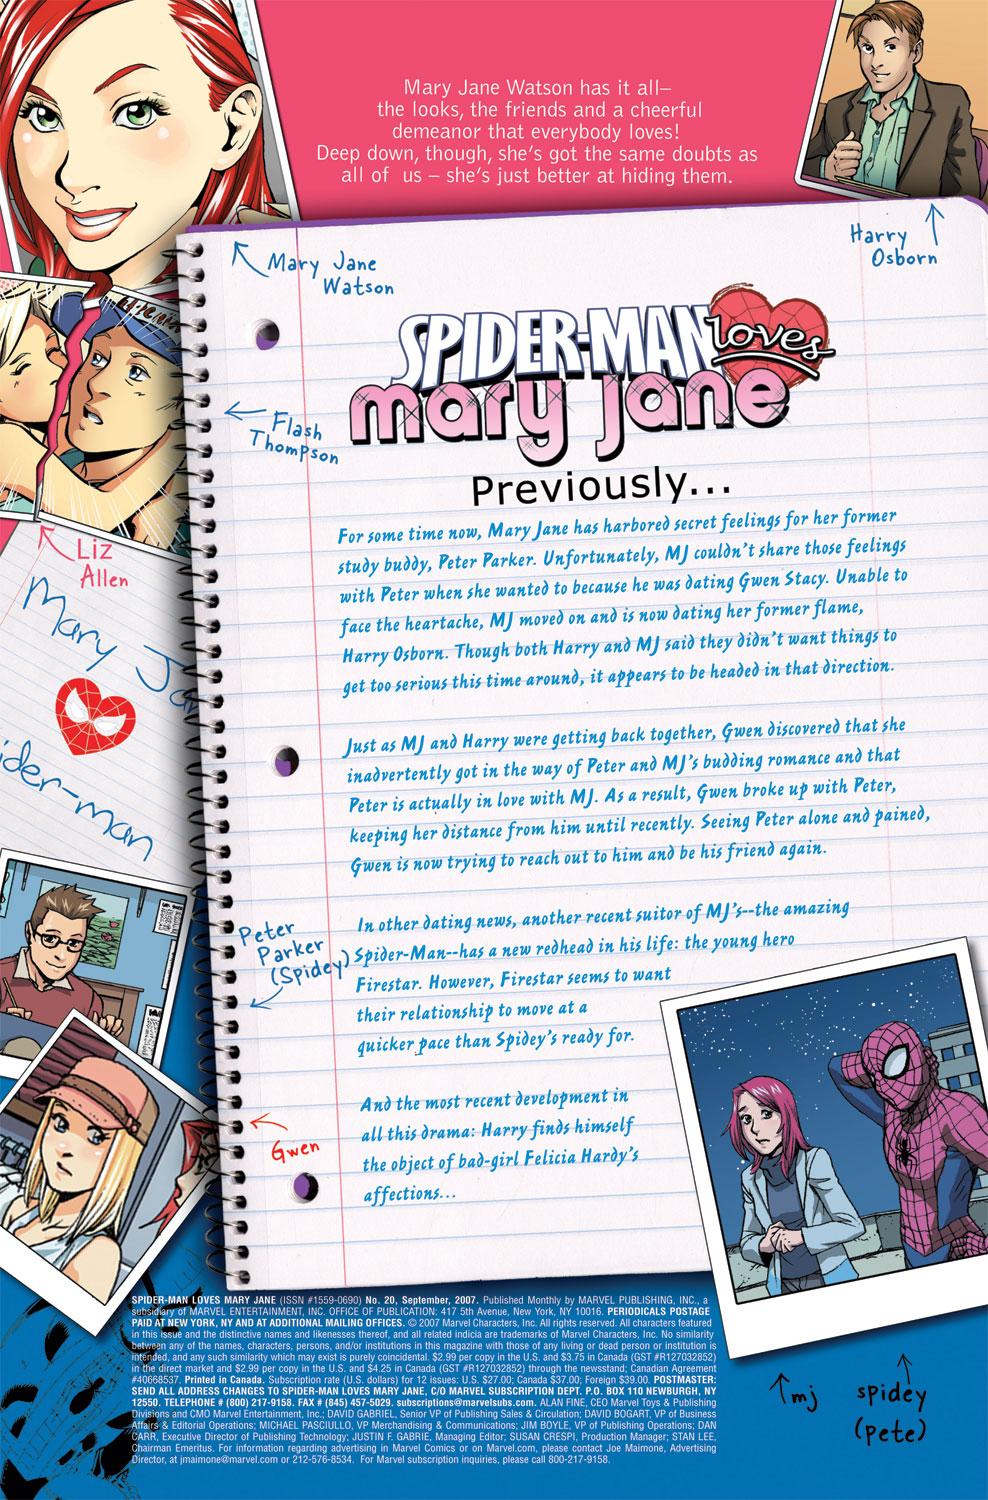 Mary Jane Watson has it all–
the looks, the friends and a cheerful
demeanor that everybody loves!
Deep down, though, she's got the same doubts as
all of us – she's just better at hiding them.
Harry
Osborn
Mary Jane
Watson
SPIDER-MAN loves
mary jane
Flash
Thompson
Previously...
For some time now, Mary Jane has harbored secret feelings for her former
study buddy, Peter Parker. Unfortunately, MJ couldn't share those feelings
with Peter when she wanted to because he was dating Gwen Stacy. Unable to
face the heartache, MJ moved on and is now dating her former flame,
Harry Osborn. Though both Harry and MJ said they didn't want things to
get too serious this time around, it appears to be headed in that direction.
Liz
Allen
Mary Ja
ider-man
Just as MJ and Harry were getting back together, Gwen discovered that she
inadvertently got in the way of Peter and MJ's budding romance and that
Peter is actually in love with MJ. As a result, Gwen broke up with Peter,
keeping her distance from him until recently. Seeing Peter alone and pained,
Gwen is now trying to reach out to him and be his friend again.
Peter
Parker
(Spidey)
In other dating news, another recent suitor of MJ's--the amazing
Spider-Man--has a new redhead in his life: the young hero
Firestar. However, Firestar seems to want
their relationship to move at a
quicker pace than Spidey's ready for.
Gwen
And the most recent development in
all this drama: Harry finds himself
the object of bad-girl Felicia Hardy's
affections...
mj spidey
(pete)
SPIDER-MAN LOVES MARY JANE (ISSN #1559-0690) No. 20, September, 2007. Published Monthly by MARVEL PUBLISHING, INC., a
subsidiary of MARVEL ENTERTAINMENT, INC. OFFICE OF PUBLICATION: 417 5th Avenue, New York, NY 10016. PERIODICALS POSTAGE
PAID AT NEW YORK, NY AND AT ADDITIONAL MAILING OFFICES. © 2007 Marvel Characters, Inc. All rights reserved. All characters featured
in this issue and the distinctive names and likenesses thereof, and all related indicia are trademarks of Marvel Characters, Inc. No similarity
between any of the names, characters, persons, and/or institutions in this magazine with those of any living or dead person or institution is
intended, and any such similarity which may exist is purely coincidental. $2.99 per copy in the U.S. and $3.75 in Canada (GST #R127032852)
in the direct market and $2.99 per copy in the U.S. and $4.25 in Canada (GST #R127032852) through the newsstand; Canadian Agreement
#40668537. Printed in Canada. Subscription rate (U.S. dollars) for 12 issues: U.S. $27.00; Canada $37.00; Foreign $39.00. POSTMASTER:
SEND ALL ADDRESS CHANGES TO SPIDER-MAN LOVES MARY JANE, C/O MARVEL SUBSCRIPTION DEPT. P.O. BOX 110 NEWBURGH, NY
12550. TELEPHONE # (800) 217-9158. FAX # (845) 457-5029. subscriptions@marvelsubs.com. ALAN FINE, CEO Marvel Toys & Publishing
Divisions and CMO Marvel Entertainment, Inc.; DAVID GABRIEL, Senior VP of Publishing Sales & Circulation; DAVID BOGART, VP of Business
Affairs & Editorial Operations; MICHAEL PASCIULLO, VP Merchandising & Communications; JIM BOYLE, VP of Publishing Operations; DAN
CARR, Executive Director of Publishing Technology; JUSTIN F. GABRIE, Managing Editor; SUSAN CRESPI, Production Manager; STAN LEE,
Chairman Emeritus. For information regarding advertising in Marvel Comics or on Marvel.com, please contact Joe Maimone, Advertising
Director, at jmaimone@marvel.com or 212-576-8534. For Marvel subscription inquiries, please call 800-217-9158.